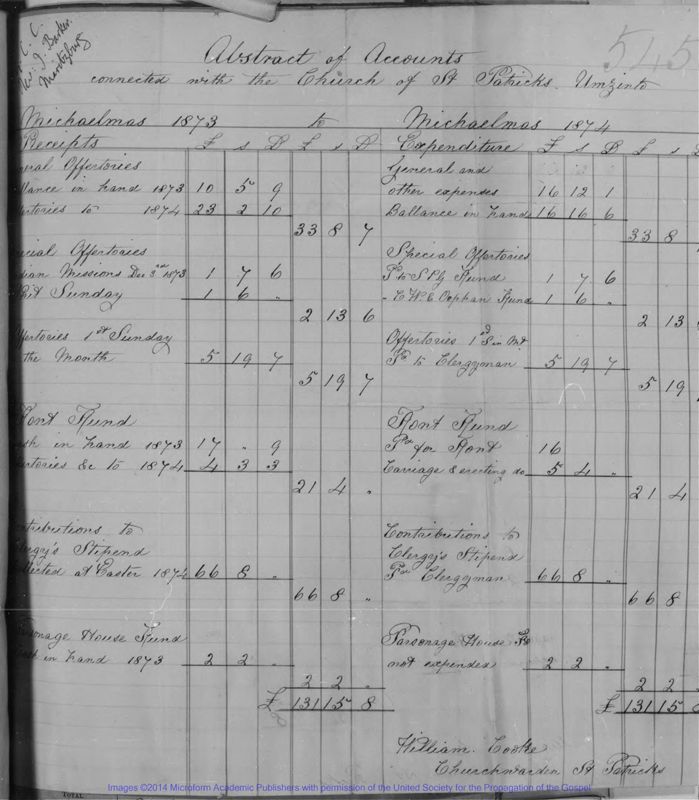 C. C.
Rev. J. Barker.
Maritzburg
545
Abstract of Accounts
connected with the Church of St Patricks. Umzinto
Michaelmas 1873 to Michaelmas 1874
Receipts £ s D £ s D
neral Offertories
llance in hand 1873 10 5 9
fertories to 1874 23 2 10
33 8 7
ecial Offertories
dian Missions Dec 3rd 1873 1 7 6
hit Sunday 1 6 "
2 13 6
ffertories 1st Sunday
the Month 5 19 7
5 19 7
Font Fund
sh in hand 1873 17 " 9
fertories &c to 1874 4 3 3
21 4 "
ntributions to
lergy's Stipend
ollected at Easter 1874 66 8 "
66 8 "
rsonage House Fund
sh in hand 1873 2 2 "
2 2 "
£ 131 15 8
Expenditure £ s D £ s
General and
other expenses 16 12 1
Ballance in hand 16 16 6
33 8
Special Offertories
Pd to S P G Fund 1 7 6
" Orphan Fund 1 6 "
2 13
Offertories 1st S in Mt
Pd to Clergyman 5 19 7
5 19
Font Fund
Pd for Font 16
Carriage & erecting do 5 4 "
21 4
Contributions to
Clergy's Stipend
Pd Clergyman 66 8 "
66 8
Parsonage House Fd
not expended 2 2 "
2 2
£ 131 15 8
William Cooke
Churchwarden St Patricks
TOTAL
Images ©2014 Microform Academic Publishers with permission of the United Society for the Propagation of the Gospel